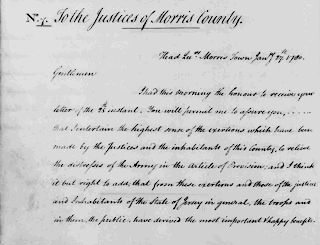 No. 4. To the Justices of Morris County.
Head Qrs. Morris Town Jany. 27th. 1780.
Gentlemen
I had this morning the honour to receive your
letter of the 25th instant. You will permit me to assure you,
that I entertain the highest sense of the exertions which have been
made by the Justices and the inhabitants of this County, to relieve
the distresses of the Army in the Article of Provision, and I think
it but right to add, that from these exertions and those of the justices
and Inhabitants of the State of Jersey in general, the troops and
in them the public, have derived the most important & happy